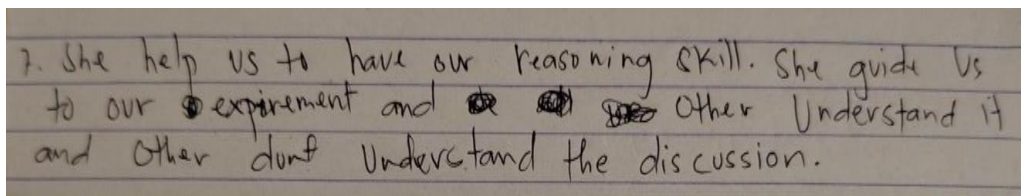 7. She help us to have our reasoning skill. She guide Us
to our expirement and Other Understand it
and Other dont Understand the discussion.